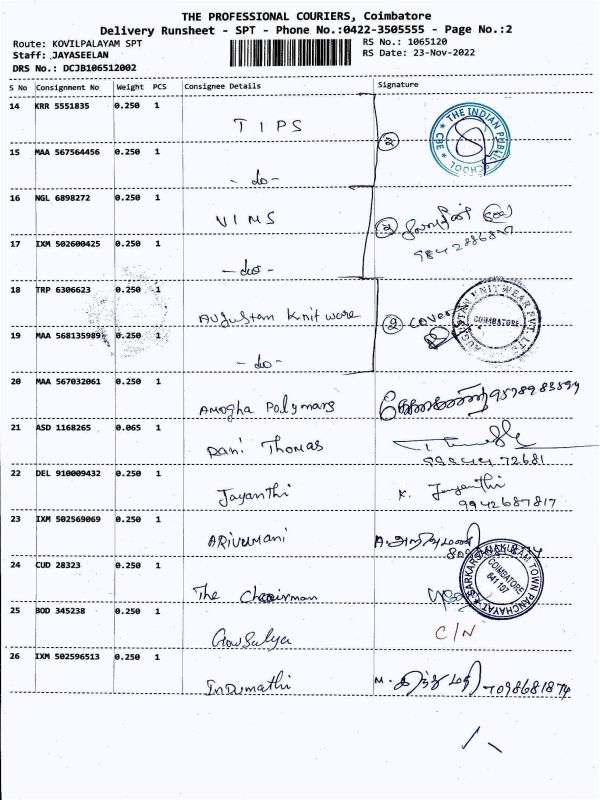 THE PROFESSIONAL COURIERS, Coimbatore
Delivery Runsheet - SPT - Phone No.:0422-3505555 - Page No.:2
Route: KOVILPALAYAM SPT
Staff: JAYASEELAN
DRS No.: DCJB106512002
RS No.: 1065120
RS Date: 23-Nov-2022
S No Consignment No Weight PCS Consignee Details Signature
14 KRR 5551835 0.250 1
TIPS
THE INDIAN PUBLIC SCHOOL
CBE
15 MAA 567564456 0.250 1
- do -
16 NGL 6898272 0.250 1
VIMS
17 IXM 502600425 0.250 1
- do -
18 TRP 6306623 0.250 1
Augustan Knit ware
② cover
AUGUSTAN KNITWEAR PVT. LTD
COIMBATORE
19 MAA 568135989 0.250 1
- do -
20 MAA 567032061 0.250 1
Amogha Polymars
9578983594
21 ASD 1168265 0.065 1
Dani Thomas
72681
22 DEL 910009432 0.250 1
Jayanthi
K. Jayanthi
9942687817
23 IXM 502569069 0.250 1
ARivumani
A. அறிவுமணி
24 CUD 28323 0.250 1
The Chairman
SARKARSAMAKULAM TOWN PANCHAYAT
COIMBATORE
641 107
25 BOD 345238 0.250 1
Gowsalya
C/N
26 IXM 502596513 0.250 1
Indumathi
M. இந்துமதி
7098681874